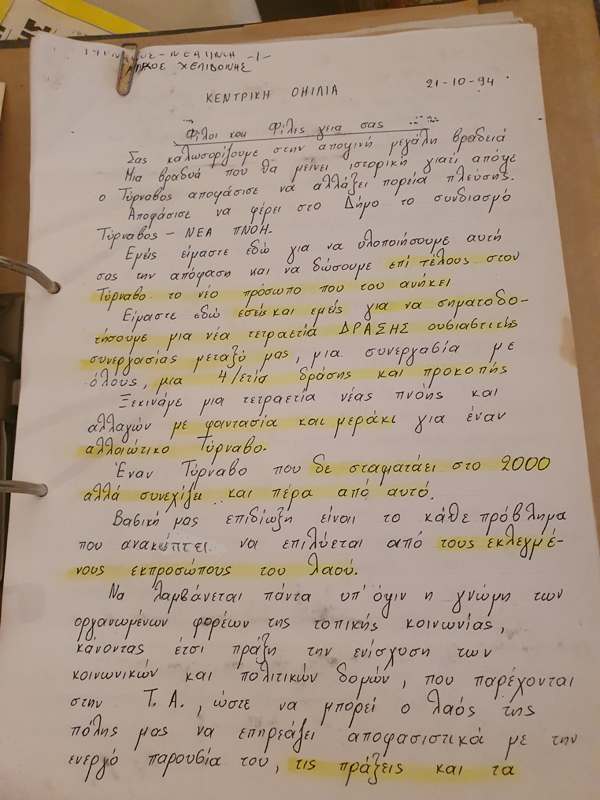 ΤΥΡΝΑΒΟΣ - ΝΕΑ ΠΝΟΗ -1-
ΝΙΚΟΣ ΧΕΛΙΔΟΝΗΣ
21-10-94
ΚΕΝΤΡΙΚΗ ΟΜΙΛΙΑ
Φίλοι και Φίλες γεια σας
Σας καλωσορίζουμε στην αποψινή μεγάλη βραδειά
Μια βραδυά που θα μείνει ιστορική γιατί απόψε
ο Τύρναβος αποφάσισε να αλλάξει πορεία πλεύσης.
Αποφάσισε να φέρει στο Δήμο το συνδιασμό
Τύρναβος - ΝΕΑ ΠΝΟΗ.
Εμείς είμαστε εδώ για να υλοποιήσουμε αυτή
σας την απόφαση και να δώσουμε επί τέλους στον
Τύρναβο το νέο πρόσωπο που του ανήκει
Είμαστε εδώ εσείς και εμείς για να σηματοδο-
τήσουμε μια νέα τετραετία ΔΡΑΣΗΣ ουσιαστικής
συνεργασίας μεταξύ μας, μια συνεργασία με
όλους, μια 4/ετία δράσης και προκοπής
Ξεκινάμε μια τετραετία νέας πνοής και
αλλαγών με φαντασία και μεράκι για έναν
αλλοιώτικο Τύρναβο.
Έναν Τύρναβο που δε σταματάει στο 2000
αλλά συνεχίζει και πέρα από αυτό.
Βασική μας επιδίωξη είναι το κάθε πρόβλημα
που ανακύπτει να επιλύεται από τους εκλεγμέ-
νους εκπροσώπους του λαού.
Να λαμβάνεται πάντα υπ' όψιν η γνώμη των
οργανωμένων φορέων της τοπικής κοινωνίας,
κάνοντας έτσι πράξη την ενίσχυση των
κοινωνικών και πολιτικών δομών, που παρέχονται
στην Τ.Α., ώστε να μπορεί ο λαός της
πόλης μας να επηρεάζει αποφασιστικά με την
ενεργό παρουσία του, τις πράξεις και τα